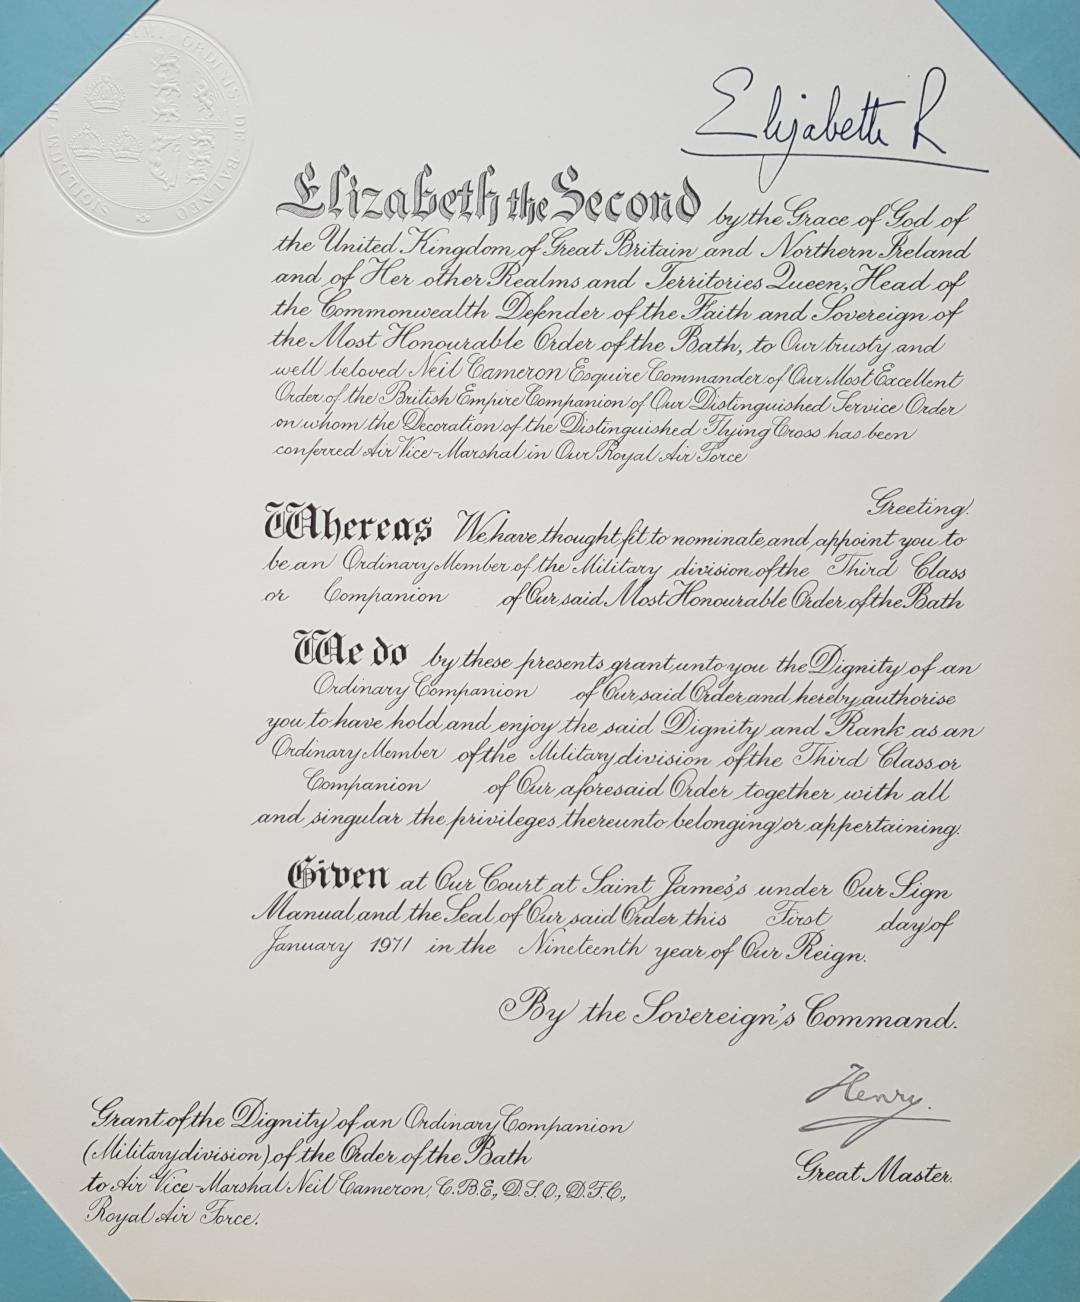 SIGILLUM H
SIMI · ORDINIS · DE BALNEO
Elizabeth R
Elizabeth the Second by the Grace of God of
the United Kingdom of Great Britain and Northern Ireland
and of Her other Realms and Territories Queen, Head of
the Commonwealth Defender of the Faith and Sovereign of
the Most Honourable Order of the Bath, to Our trusty and
well beloved Neil Cameron Esquire Commander of Our Most Excellent
Order of the British Empire Companion of Our Distinguished Service Order
on whom the Decoration of the Distinguished Flying Cross has been
conferred Air Vice-Marshal in Our Royal Air Force
Greeting.
Whereas We have thought fit to nominate and appoint you to
be an Ordinary Member of the Military division of the Third Class
or Companion of Our said Most Honourable Order of the Bath
We do by these presents grant unto you the Dignity of an
Ordinary Companion of Our said Order and hereby authorise
you to have hold and enjoy the said Dignity and Rank as an
Ordinary Member of the Military division of the Third Class or
Companion of Our aforesaid Order together with all
and singular the privileges thereunto belonging or appertaining.
Given at Our Court at Saint James's under Our Sign
Manual and the Seal of Our said Order this First day of
January 1971 in the Nineteenth year of Our Reign.
By the Sovereign's Command.
Henry.
Great Master.
Grant of the Dignity of an Ordinary Companion
(Military division) of the Order of the Bath
to Air Vice-Marshal Neil Cameron, C.B.E., D.S.O., D.F.C.,
Royal Air Force.